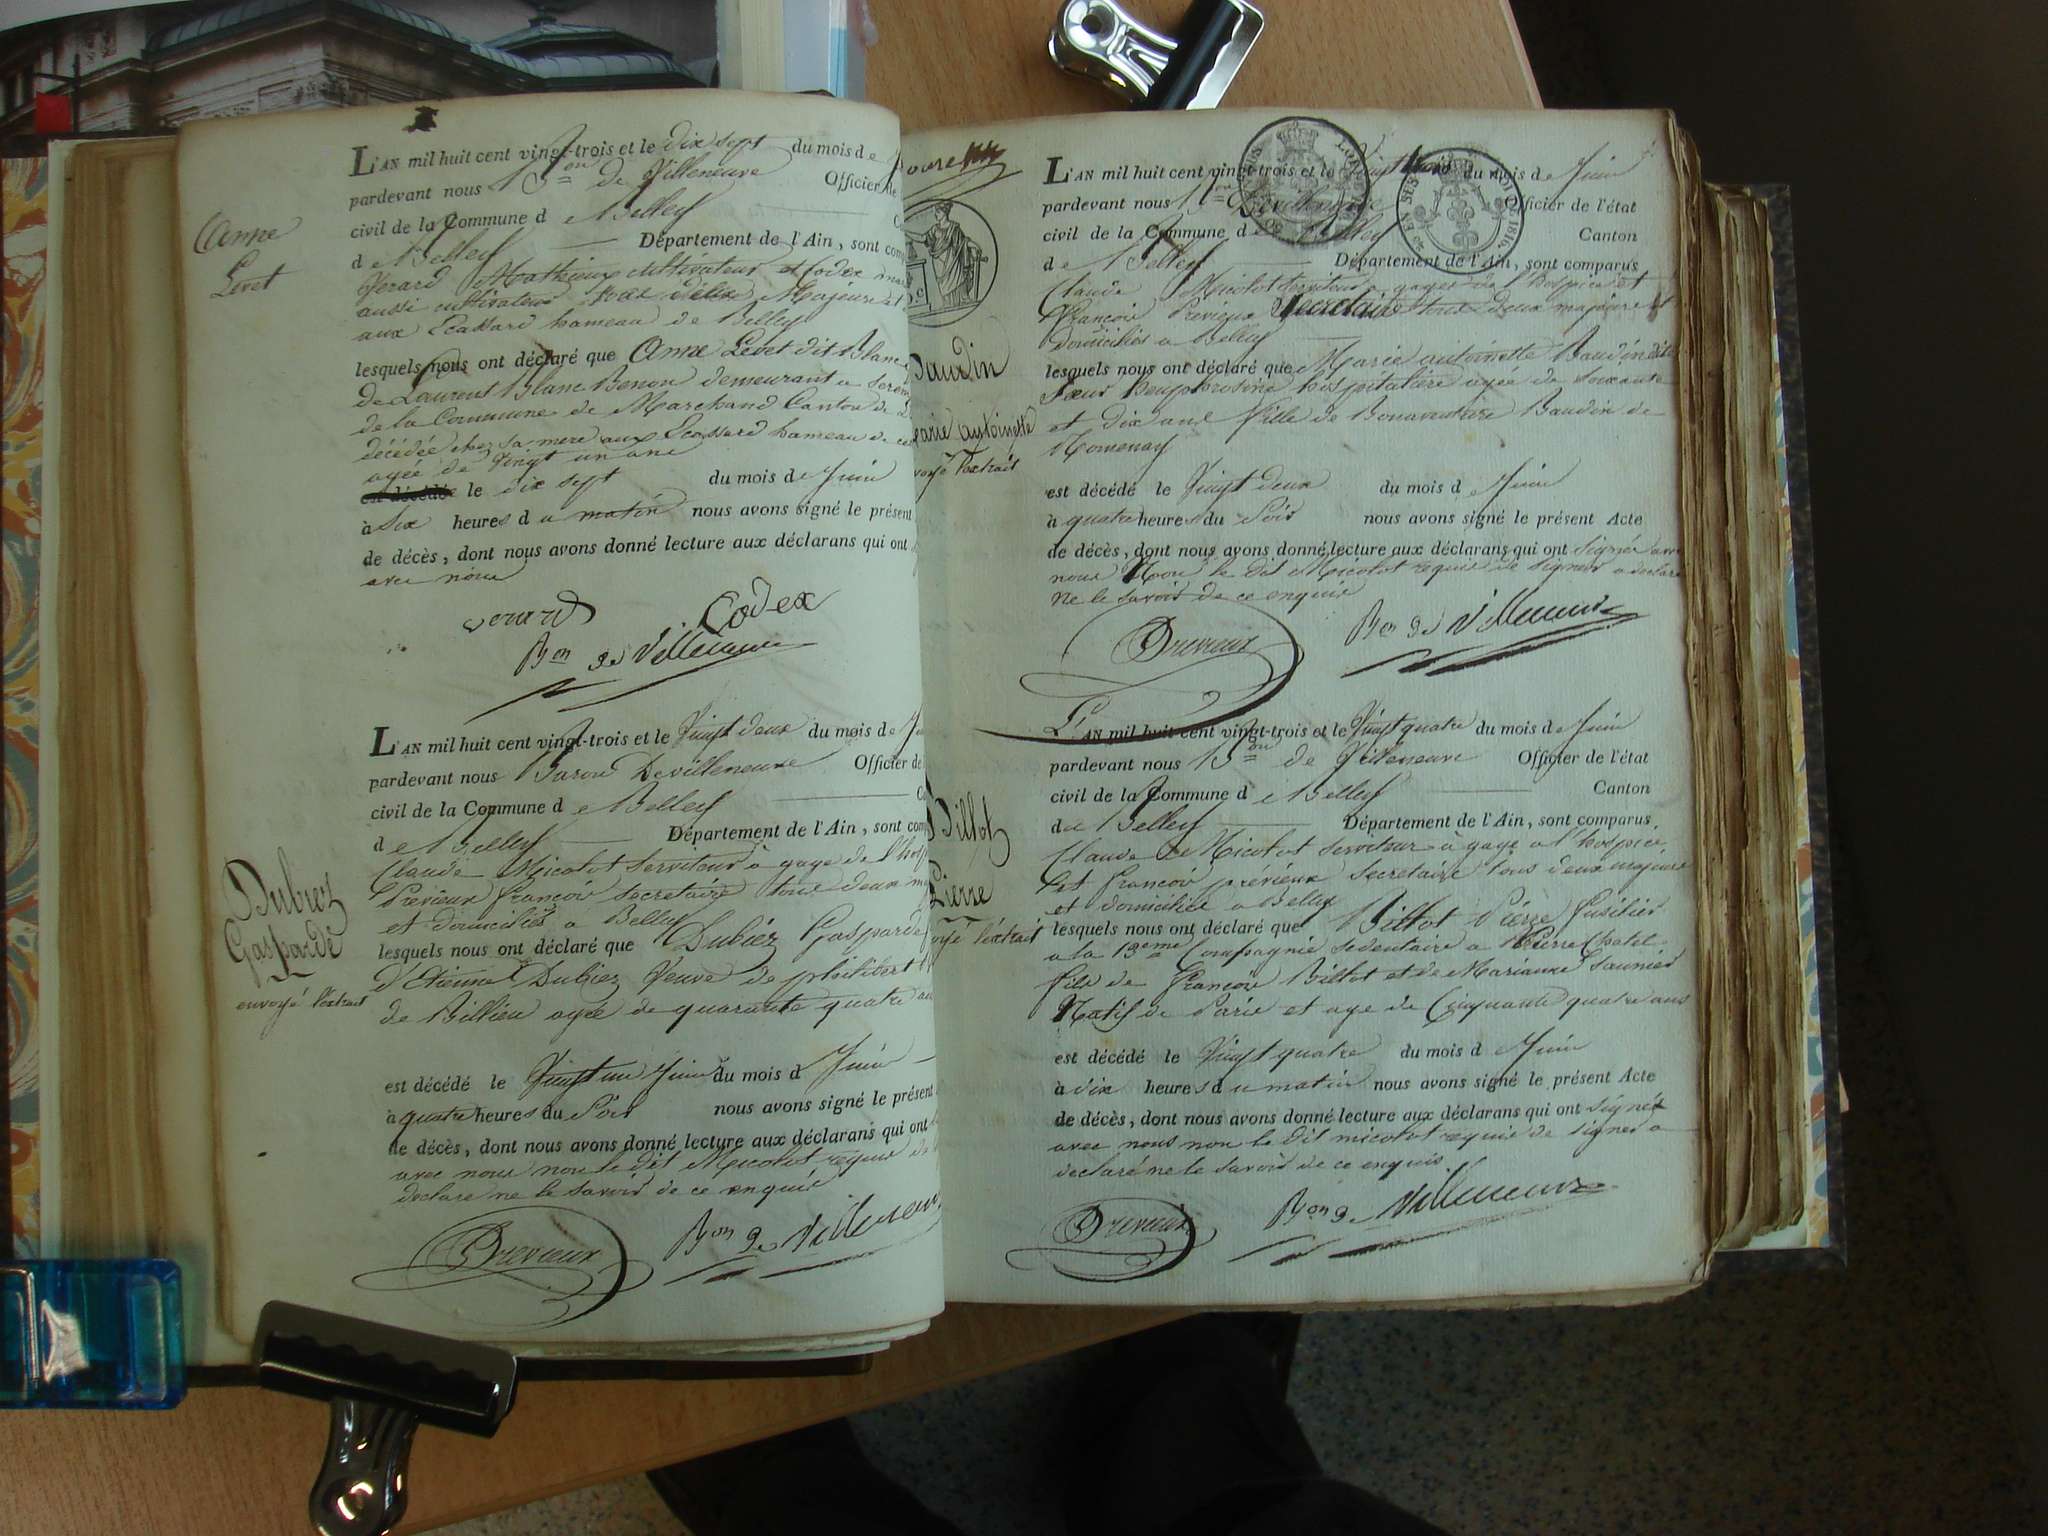 L'AN mil huit cent vingt-trois et le dix sept du mois de
pardevant nous Bon de Villeneuve Officier de
civil de la Commune de Belley
de Belley Département de l'Ain, sont com
Anne
Levet
Verard Mathieux cultivateur et Codex
aussi cultivateur tous deux Majeurs et
aux Ecassard hameau de Belley
lesquels nous ont déclaré que Anne Levet dit Blanc
de Laurent Blanc Benon demeurant a
de la Commune de Marchand Canton de
décédée chez sa mere aux Ecassard hameau de
agée de vingt un ans
est décédé le dix sept du mois de Juin
à Six heures du matin nous avons signé le présent
de décès, dont nous avons donné lecture aux déclarans qui ont
avec nous
verard Codex
Bon de Villeneuve
L'AN mil huit cent vingt-trois et le Vingt deux du mois de
pardevant nous Baron De villeneuve Officier de
civil de la Commune de Belley
de Belley Département de l'Ain, sont com
Dubiez
Gasparde
envoyé l'extrait
Claude Micolot Serviteur à gage de l'hos
Prévieux françois secretaire tous deux
et domiciliés a Belley
lesquels nous ont déclaré que Dubiez Gasparde
d'Etienne Dubiez Veuve de philibert
de Billieu agée de quarante quatre
est décédé le Vingt un Juin du mois de Juin
à quatre heures du Soir nous avons signé le présent
de décès, dont nous avons donné lecture aux déclarans qui ont
avec nous non le dit Micolot requis de
declare ne le savoir de ce enquis
Previeux Bon de Villeneuve
L'AN mil huit cent vingt-trois et le Vingt trois du mois de Juin
pardevant nous Bon Devilleneuve Officier de l'état
civil de la Commune de Belley Canton
de Belley Département de l'Ain, sont comparus
Baudin
marie antoinette
envoyé l'extrait
Claude Micolot serviteur a gages de l'hospice et
François Prévieux Secretaire tous deux majeurs et
domiciliés a Belley
lesquels nous ont déclaré que Marie antoinette Baudin dite
Sœur hospitalière agée de soixante
et dix ans fille de Bonaventure Baudin de
Nomenay
est décédé le Vingt deux du mois de Juin
à quatre heures du Soir nous avons signé le présent Acte
de décès, dont nous avons donné lecture aux déclarans qui ont signé avec
nous Non le dit Micolot requis de signer a declare
Ne le savoir de ce enquis
Previeux Bon de Villeneuve
L'AN mil huit cent vingt-trois et le Vingt quatre du mois de Juin
pardevant nous Bon de Villeneuve Officier de l'état
civil de la Commune de Belley Canton
de Belley Département de l'Ain, sont comparus
Billot
Pierre
envoyé l'extrait
Claude Micolot serviteur à gage a l'hospice
Et françois prévieux secretaire tous deux majeurs
et domiciliés a Belley
lesquels nous ont déclaré que Billot Pierre fusilier
a la 13eme Compagnie sedentaire a Pierre Chatel
fils de François Billot et de Marianne Saunier
Natif de Paris et age de Cinquante quatre ans
est décédé le Vingt quatre du mois de Juin
à dix heures du matin nous avons signé le présent Acte
de décès, dont nous avons donné lecture aux déclarans qui ont signés
avec nous non le dit micolot requis de signer a
declaré ne le savoir de ce enquis
Previeux Bon de Villeneuve